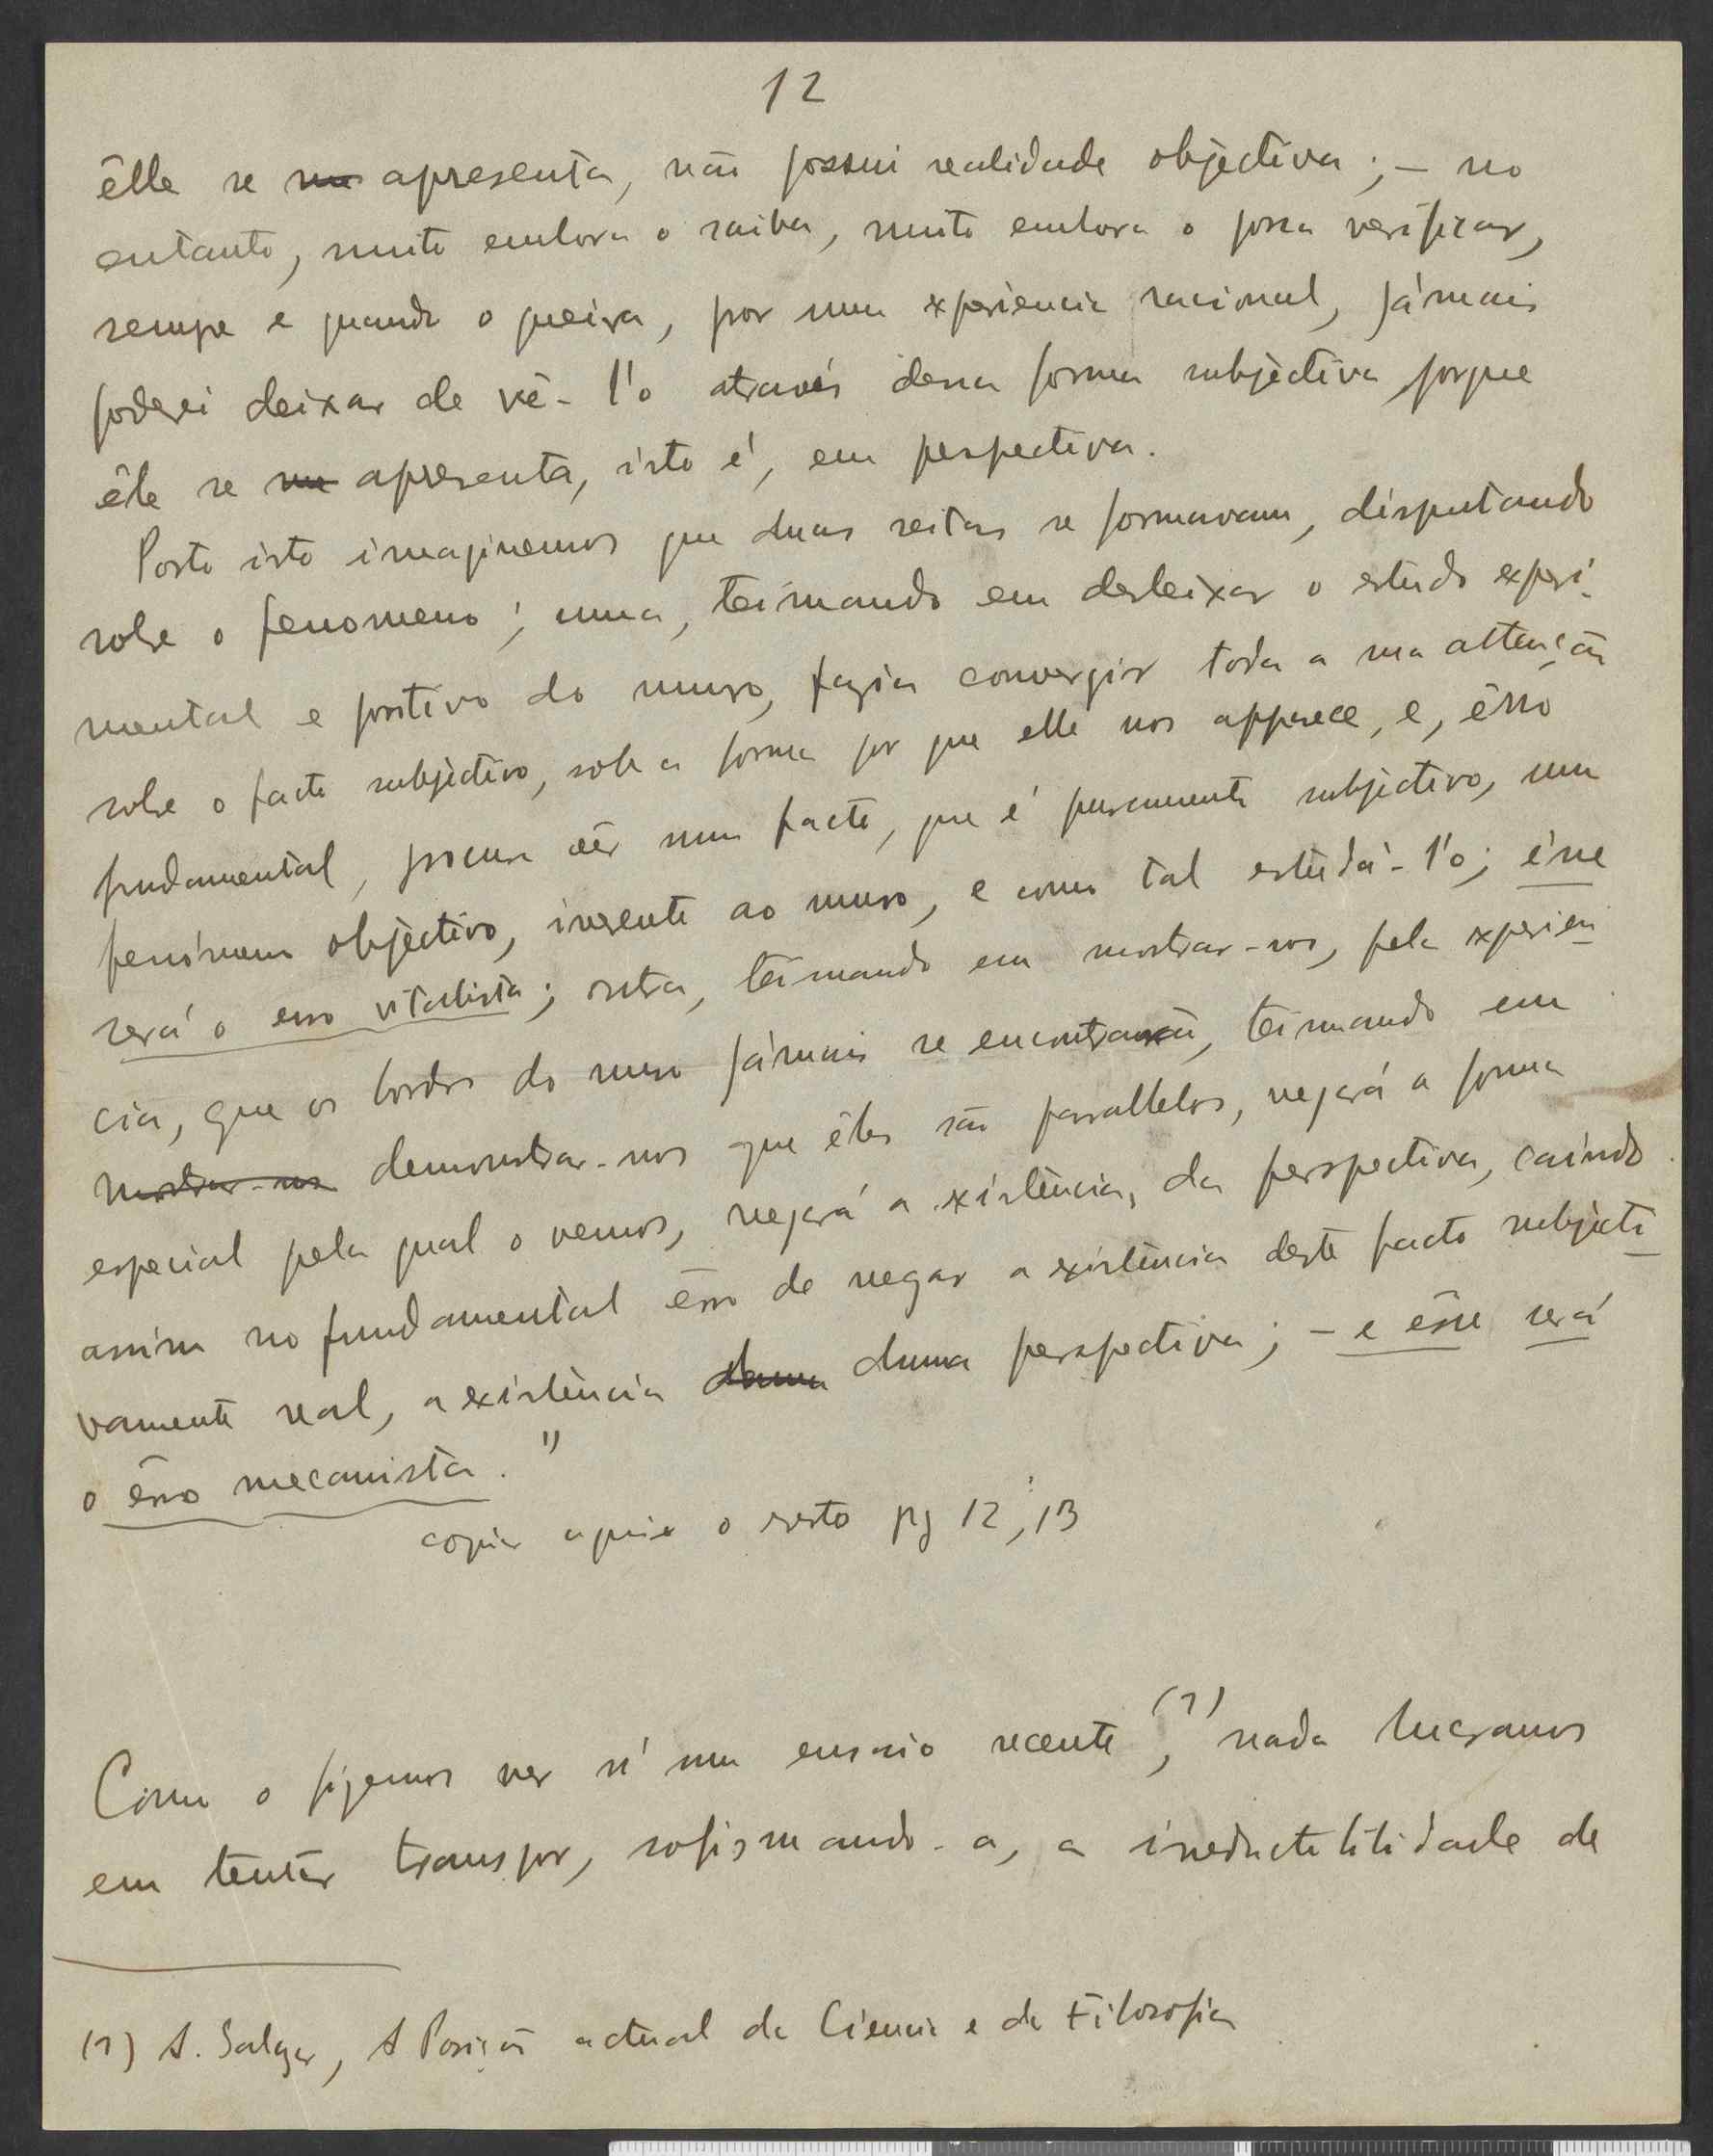 12
êlle se me apresenta, não possui realidade objectiva; – no
entanto, muito embora o saiba, muito embora o possa verificar,
sempre e quando o queira, por uma experiencia racional, jámais
poderei deixar de vê-l'o através dessa forma subjectiva porque
êle se me apresenta, isto é, em perspectiva.
Posto isto imaginemos que duas seitas se formavam, disputando
sobre o fenomeno; uma, teimando em desleixar o estudo experi-
mental e positivo do muro, fazia convergir toda a sua attenção
sobre o facto subjectivo, sob a forma por que elle nos apparece, e, érro
fundamental, procura vêr num facto, que é puramente subjectivo, um
fenómeno objectivo, inerente ao muro, e como tal estudá-l'o; êsse
será o erro vitalista; outra, teimando em mostrar-nos, pela experien-
cia, que os bordos do muro jámais se encontrarão, teimando em
mostrar-nos demonstrar-nos que êles são parallelos, negará a forma
especial pela qual o vemos, negará a existência, da perspectiva, caindo
assim no fundamental êrro de negar a existência deste facto subjecti-
vamente real, a existência duma duma perspectiva; – e êsse será
o êrro mecanista."
copiar aqui o resto pg 12, 13
Como o fizemos ver n'um ensaio recente (1), nada lucramos
em tentar transpor, sofismando-a, a irreductibilidade de
(1) A. Salazar, A Posição actual da Ciencia e da Filosofia